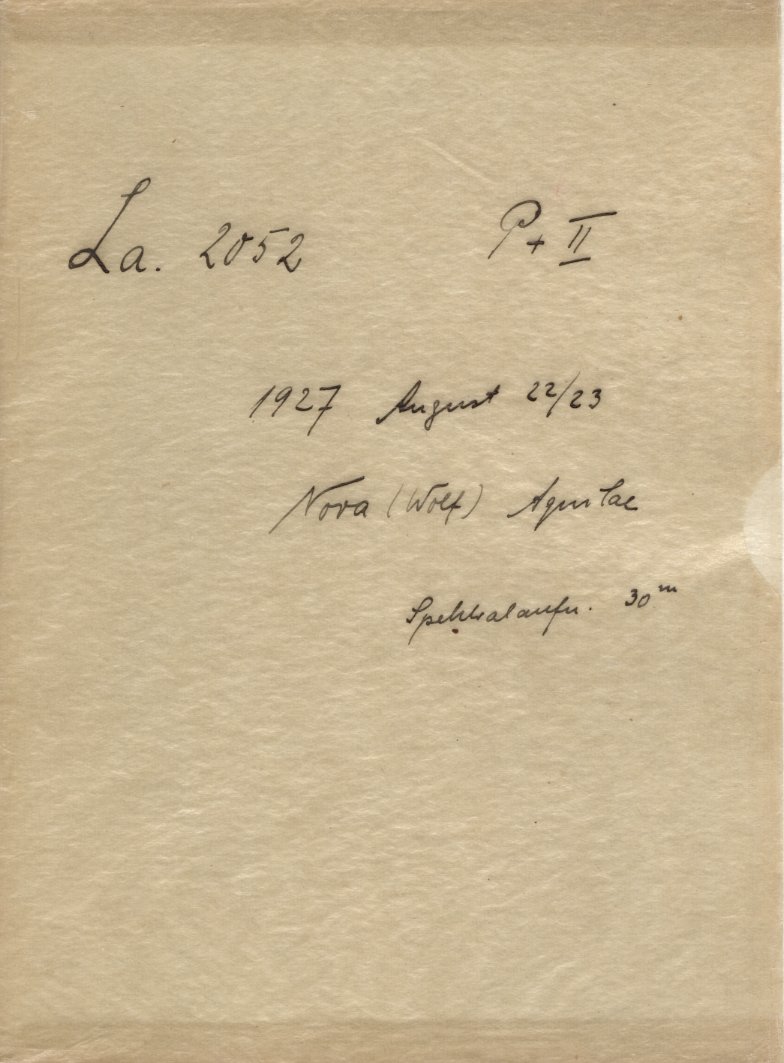 La. 2052 P + II
1927 August 22/23
Nova (Wolf) Aquilae
Spektralaufn. 30m